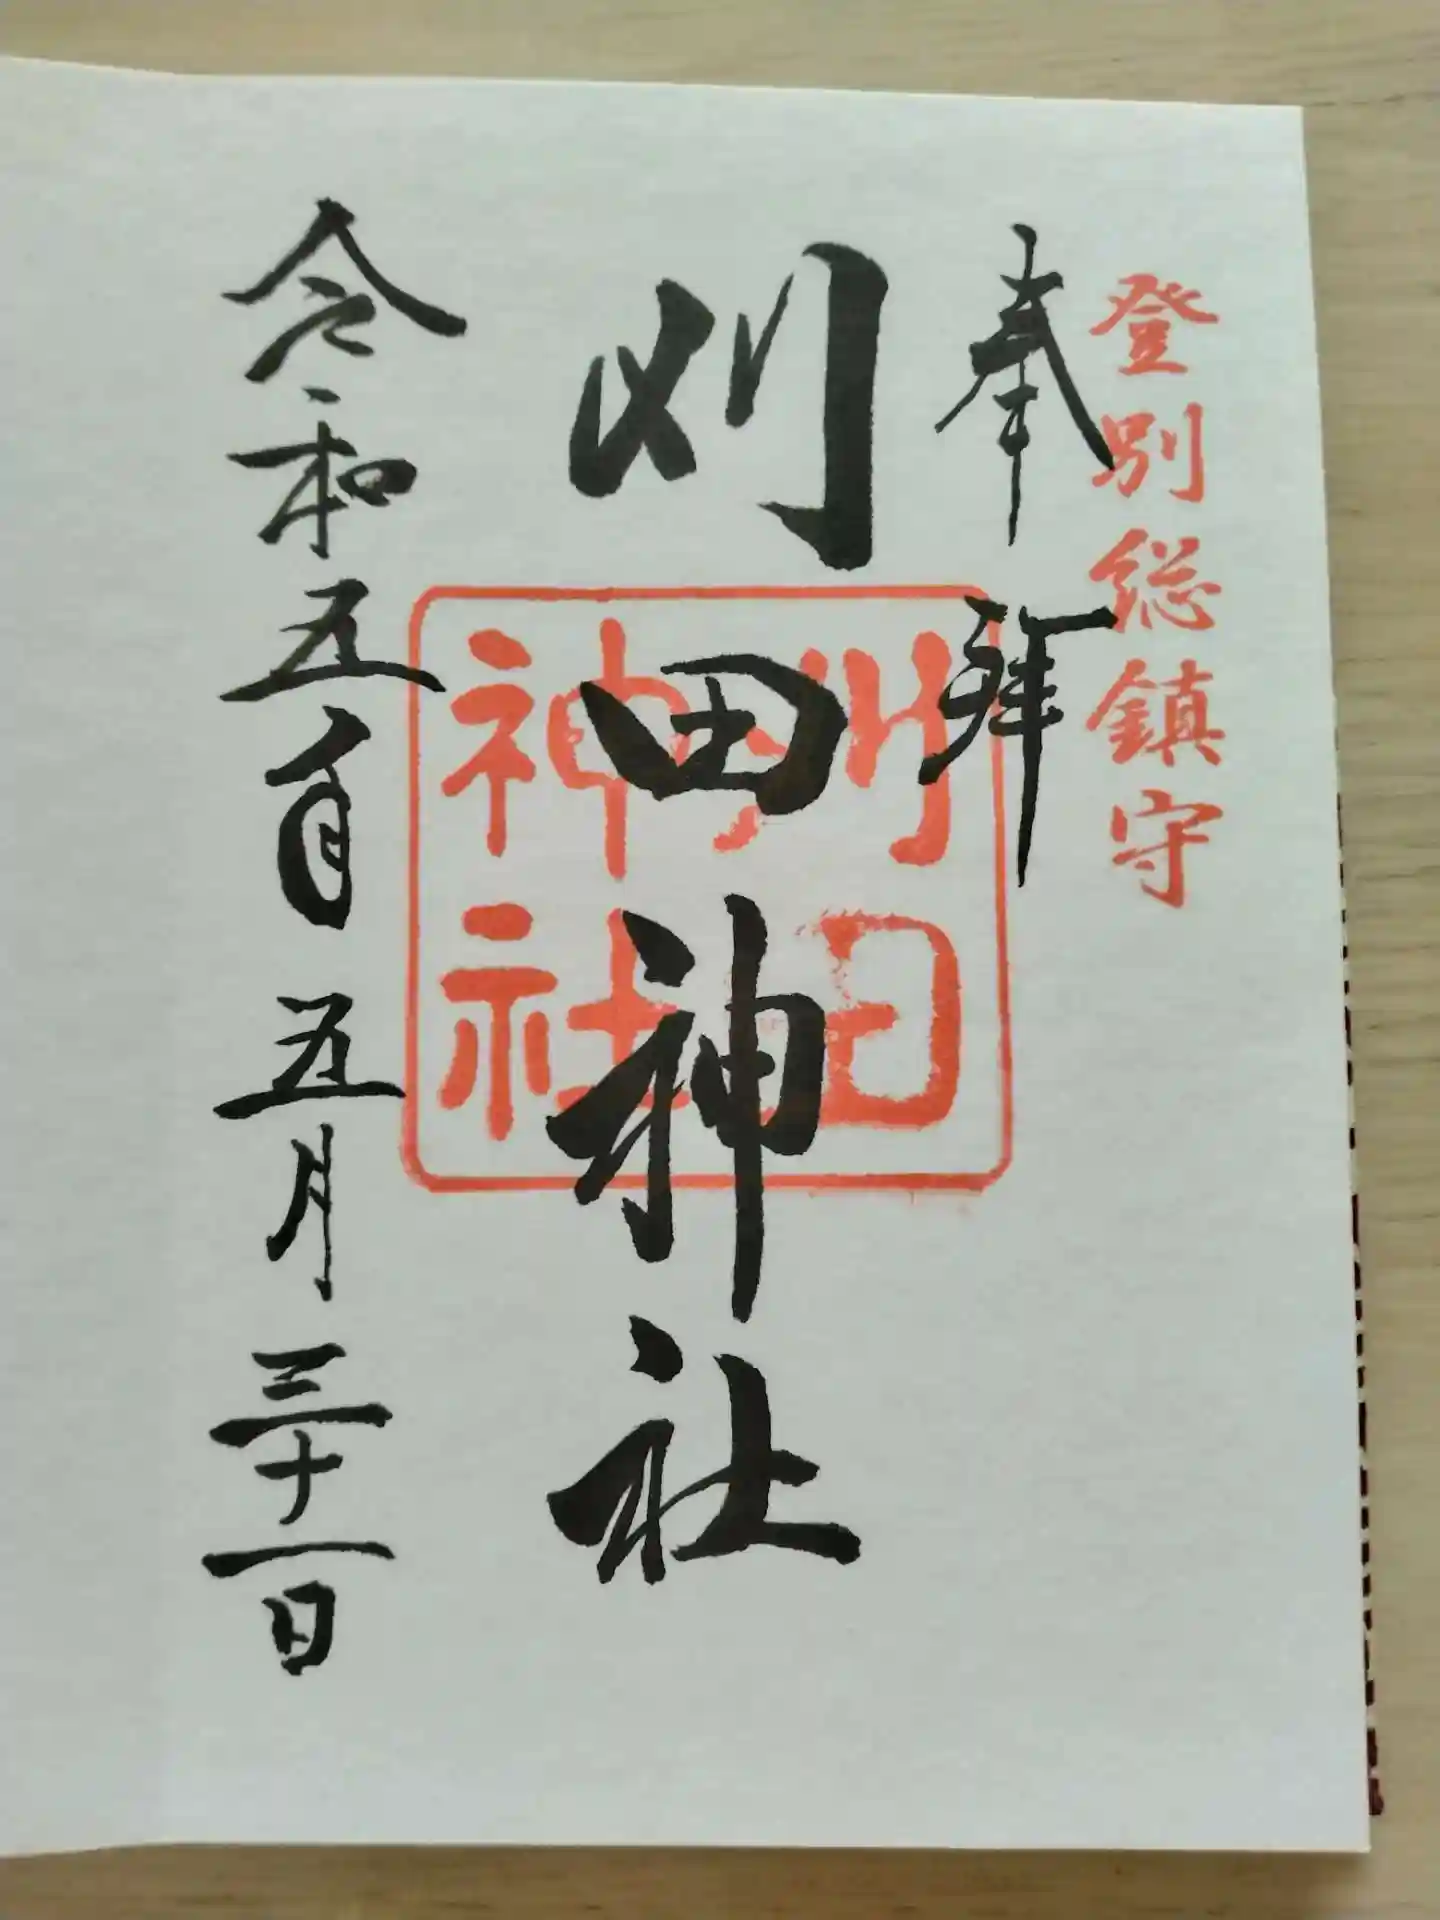 登別総鎮守
奉拝
刈田神社
刈田
神社
令和五年五月三十一日